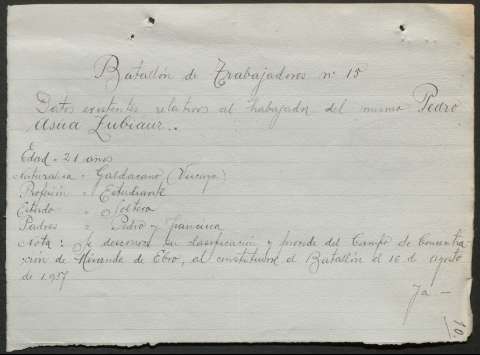 Batallón de Trabajadores nº 15
Datos existentes relativos al trabajador del mismo Pedro
Asua Zubiaur.-
Edad - 21 años
Naturaleza - Galdacano (Vizcaya)
Profesión - Estudiante
Estado - Soltero
Padres - Pedro y Francisca
Nota: Se desconoce su clasificación y procede del Campo de Concentra-
ción de Miranda de Ebro, al constituirse el Batallón el 16 de agosto
de 1.937
10